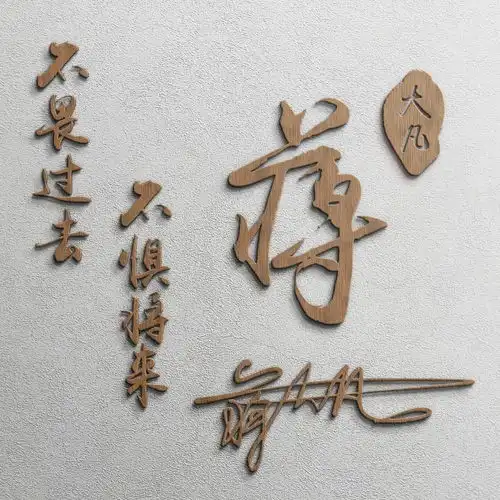 不畏过去
不惧将来
蒋
大凡